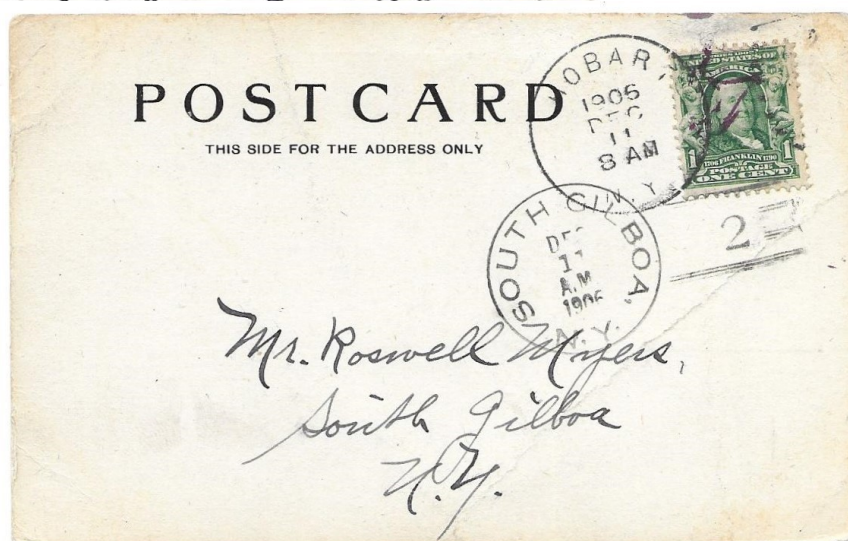 POST CARD
THIS SIDE FOR THE ADDRESS ONLY
HOBART
1906
DEC
11
8 AM
N.Y.
UNITED STATES OF
AMERICA
1706 FRANKLIN 1790
1 POSTAGE 1
ONE CENT
2
SOUTH GILBOA,
DEC
11
A.M
1906
N.Y.
Mr. Roswell Myers,
South Gilboa
N.Y.